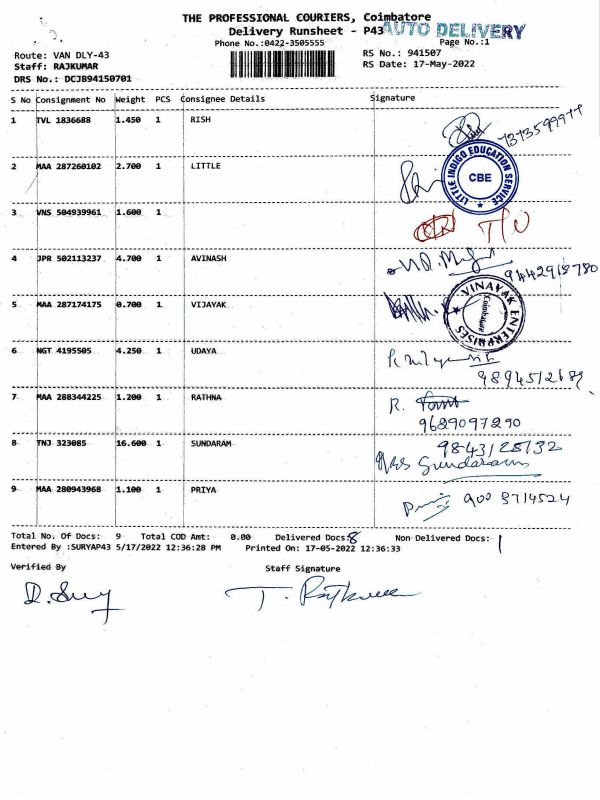 THE PROFESSIONAL COURIERS, Coimbatore
Delivery Runsheet - P43
AUTO DELIVERY
Phone No.:0422-3505555
Page No.:1
Route: VAN DLY-43
RS No.: 941507
Staff: RAJKUMAR
RS Date: 17-May-2022
DRS No.: DCJB94150701
S No Consignment No Weight PCS Consignee Details Signature
1 TVL 1836688 1.450 1 RISH
7373599977
2 MAA 287260102 2.700 1 LITTLE
LITTLE INDIGO EDUCATION SERVICE
CBE
3 VNS 504939961 1.600 1
4 JPR 502113237 4.700 1 AVINASH
9442918780
5 MAA 287174175 0.700 1 VIJAYAK
VINAYAK ENTERPRISES
Coimbatore
6 NGT 4195505 4.250 1 UDAYA
7 MAA 288344225 1.200 1 RATHNA
R.
9689097290
8 TNJ 323085 16.600 1 SUNDARAM
9843125132
Sundaram
9 MAA 280943968 1.100 1 PRIYA
900 3714524
Total No. Of Docs: 9 Total COD Amt: 0.00 Delivered Docs: 8 Non Delivered Docs: 1
Entered By :SURYAP43 5/17/2022 12:36:28 PM Printed On: 17-05-2022 12:36:33
Verified By Staff Signature
T. Rajkumar